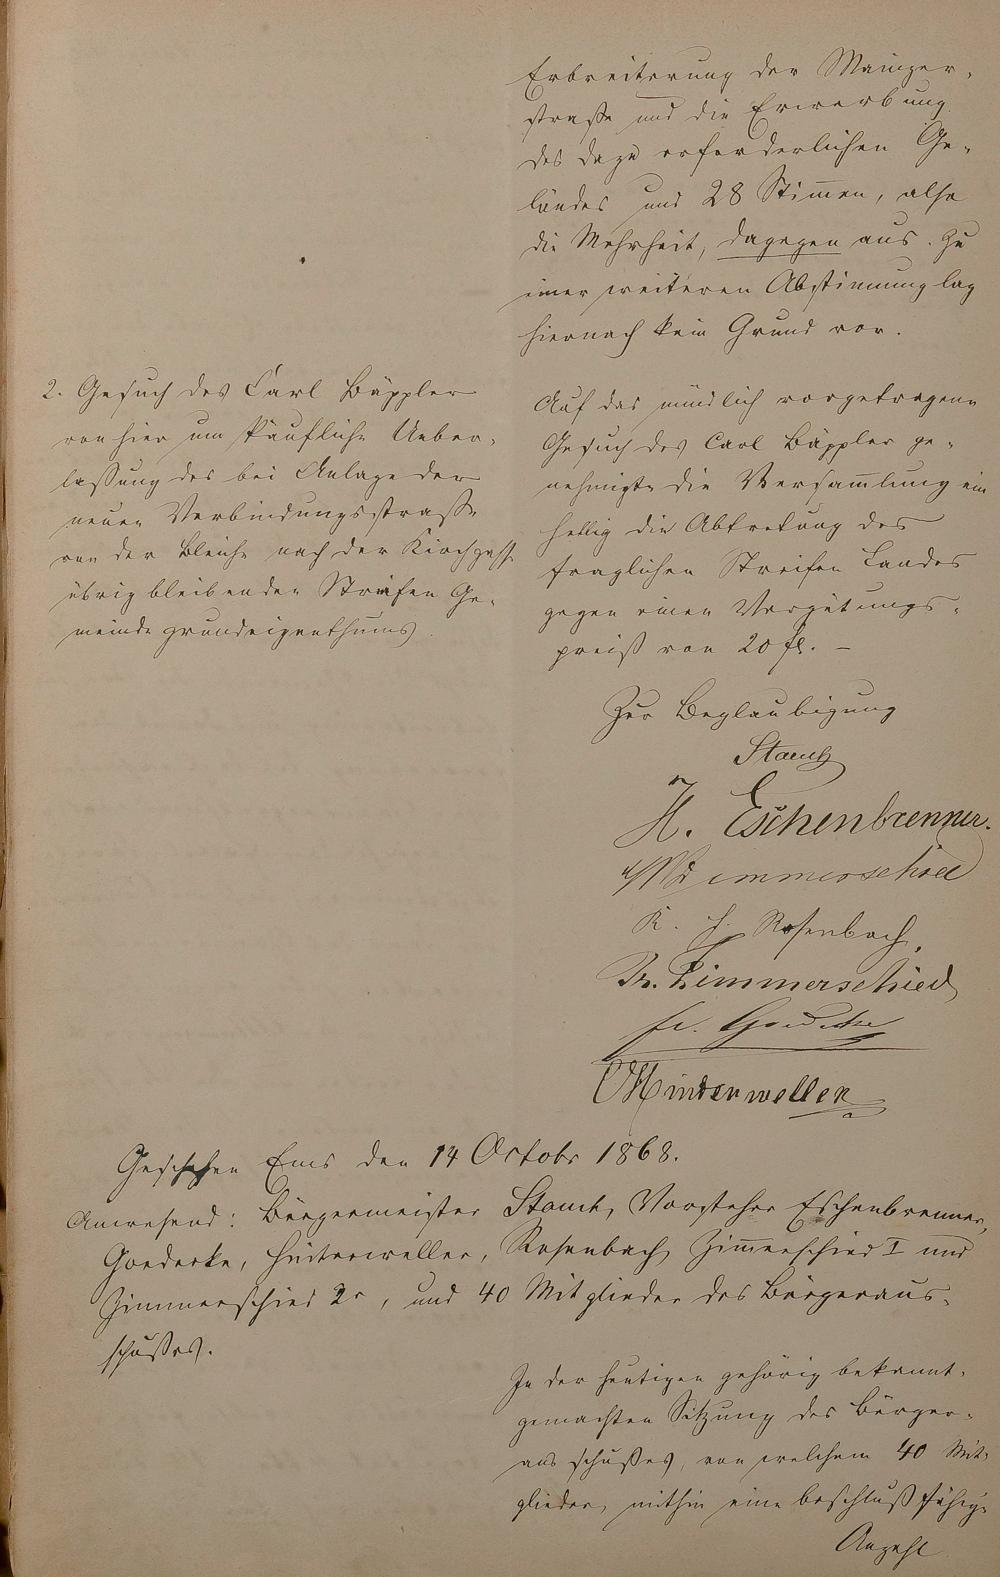 Erbreiterung der Mainzer-
straße und die Erwerbung
des dazu erforderlichen Ge-
ländes und 28 Stimmen, also
die Mehrheit, dagegen aus. Zu
einer weiteren Abstimmung lag
hiernach kein Grund vor.
2. Gesuch des Carl Bäppler
von hier um käufliche Ueber-
lassung des bei Anlage der
neuen Verbindungsstraße
von der Bleiche nach der Kirchgasse
übrig bleibenden Streifen Ge-
meindegrundeigenthums
Auf das mündlich vorgetragene
Gesuch des Carl Bäppler ge-
nehmigte die Versamlung ein
hellig die Abtretung des
fraglichen Streifen Landes
gegen einen Vergütungs-
preiß von 20 fl. –
Zur Beglaubigung
H. Eschenbrenner.
K. H. Rosenbach,
Ph. Zimmerschied
Geschehen Ems den 14 Octobr 1868.
Anwesend: Bürgermeister Vorsteher Eschenbrenner,
Goedecke, Hinterweller, Rosenbach, Zimerschied I und
Zimmerschied 2r, und 40 Mitglieder des Bürgeraus-
schußes.
In der heutigen gehörig bekannt-
gemachten Sitzung des Bürger-
ausschußes, von welchem 40 Mit-
glieder, mithin eine beschlußfähige
Anzahl